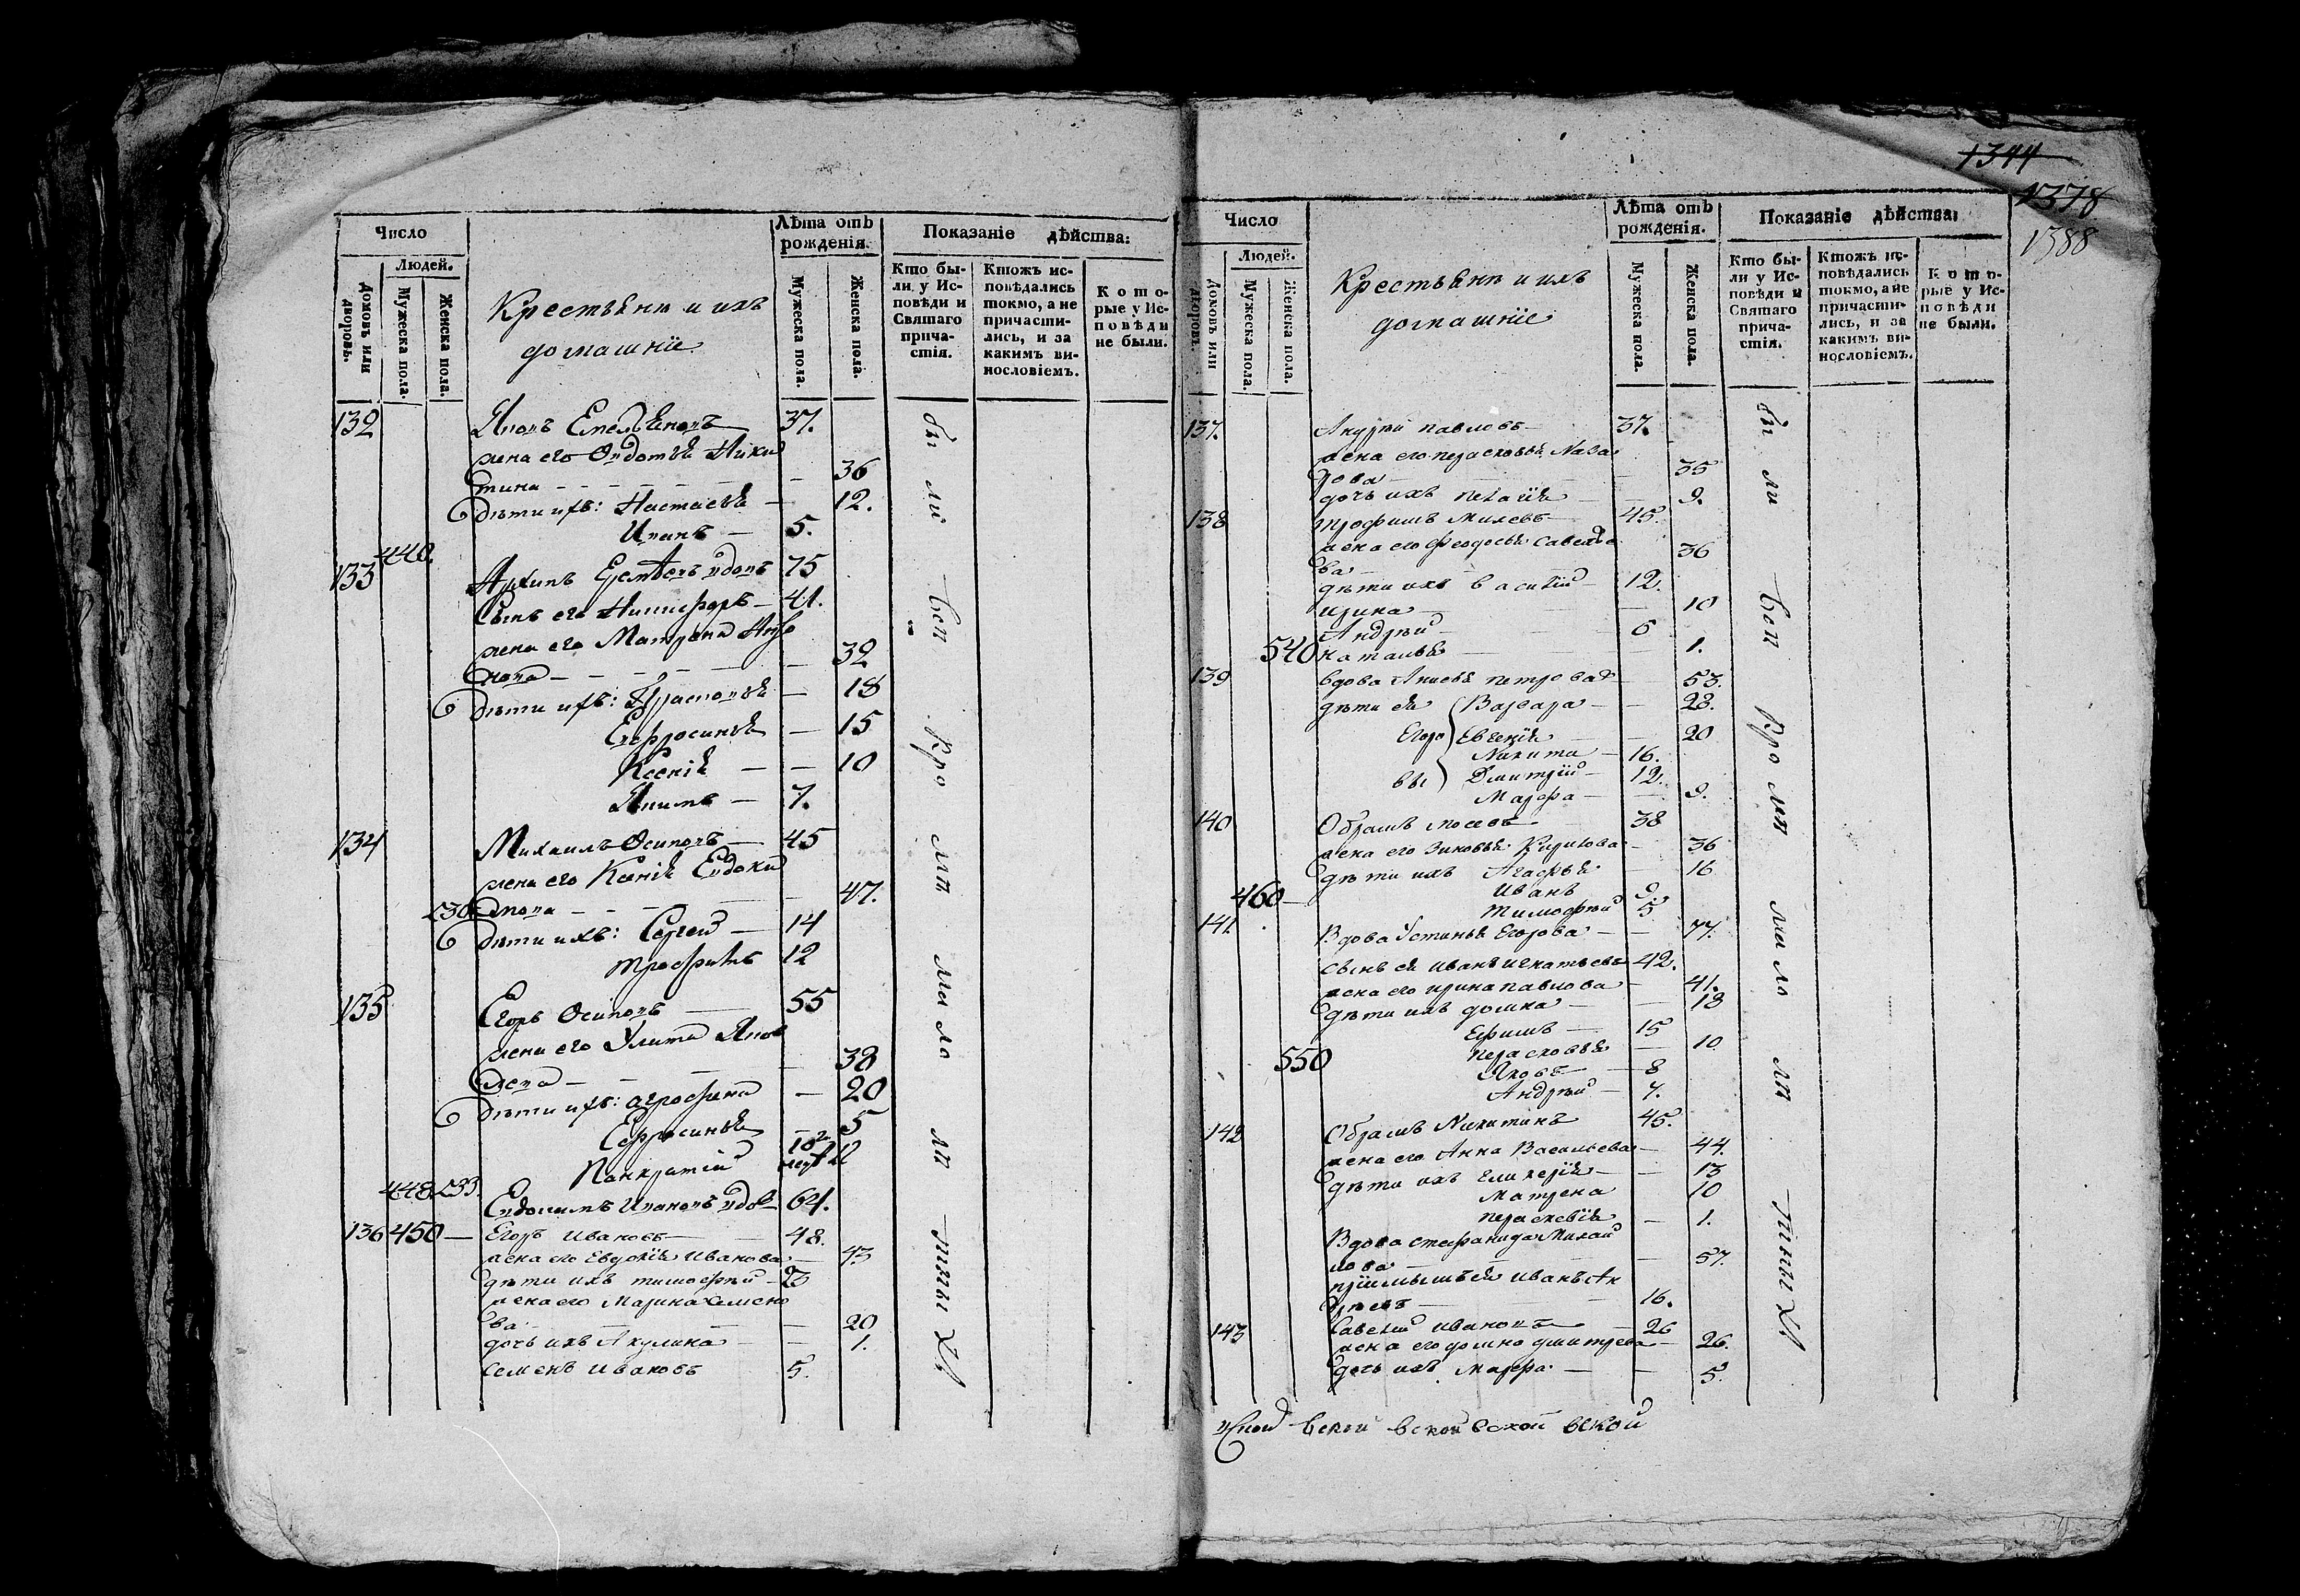 1344
1378
1388
Число
Людей.
Домовъ или дворовъ.
Мужеска пола.
Женска пола.
Крестьяня и ихъ
домашніе
Лѣта отъ рожденія.
Мужеска пола.
Женска пола.
Показаніе дѣйства:
Кто бы-
ли у Ис-
повѣди и
Святаго
прича-
стія.
Ктожъ ис-
повѣдались
токмо, а не
причасти-
лись, и за
какимъ ви-
нословіемъ.
Кото-
рые у Ис-
повѣди
не были.
132 Яковъ Емельяновъ 37.
жена его Овдотья Ники
тина - - - 36
дѣти ихъ: Настасья - 12.
Иванъ - 5.
440.
133 Архипъ вдовъ 75
Сынъ его Никифоръ - 41.
жена его Матрена
нова - - - 32
дѣти ихъ: - 18
Ефросинья - 15
Ксенія - 10
Якимъ - 7.
134 Михаилъ Осиповъ - 45
жена его Ксенія Евдоки
мова - - - 47.
дѣти ихъ: Сергей - 14
Трофимъ 12
135 Егоръ Осиповъ 55
жена его Улита Яков
лева - - - 38
дѣти ихъ: Агрофена - 20
Ефросинья 5
Панкратій
448. 533. Евдокимъ Ивановъ вдов 64.
136 450 Егоръ Ивановъ 48.
жена его Евдокія Иванова 43
дѣти ихъ Тимофѣй - 23
жена его Марина Семено
ва - 20
дочь ихъ Акулина - 1.
Семенъ Ивановъ 5.
бы ли вси кро мя ма ло лѣ тныхъ
Число
Людей.
Домовъ или дворовъ.
Мужеска пола.
Женска пола.
Крестьяня и ихъ
домашніе
Лѣта отъ рожденія.
Мужеска пола.
Женска пола.
Показаніе дѣйства:
Кто бы-
ли у Ис-
повѣди и
Святаго
прича-
стія.
Ктожъ ис-
повѣдались
токмо, а не
причасти-
лись, и за
какимъ ви-
нословіемъ.
Кото-
рые у Ис-
повѣди
не были.
137. Андрѣй Павловъ 37.
жена его Перасковья Наза
рова - 35
дочь ихъ Пелагія - 9.
138 Трофимъ Михевъ 45.
жена его Феодосья Савелье
ва - 36
дѣти ихъ Василій - 12.
Ирина - 10
Андрѣй 6
540 Наталья - 1.
139 вдова Анисья Петрова 53.
дѣти ея Варвара - 22.
Егоро Евгенія - 20
Никита - 16.
вы Дмитрій - 12.
Марфа - 9.
140 Обрамъ 38
жена его Зиновья Кирилова 36
дѣти ихъ Агафья - 16
Иванъ 9.
460 Тимофѣй 5
141. Вдова Устинья Егорова - 77.
сынъ ея Иванъ Игнатьевъ 42.
жена его Ирина Павлова - 41.
дѣти ихъ Домна - 18
Ефимъ - 15
550 Перасковья - 10
Яковъ - 8
Андрѣй - 7.
142 Обрамъ Никитинъ 45.
жена его Анна Васильева - 44.
дѣти ихъ Гликерія - 13
Матрена 10
Перасковія - 1.
Вдова Стефанида Михай
лова - 57.
пріимышъ ея Иванъ Ан
дрѣевъ - 16.
143 Савелій Ивановъ 26
жена его Домна Дмитрева - 26.
дочь ихъ Марфа - 5.
бы ли вси кро мя ма ло лѣ тныхъ
вской вской вской вской